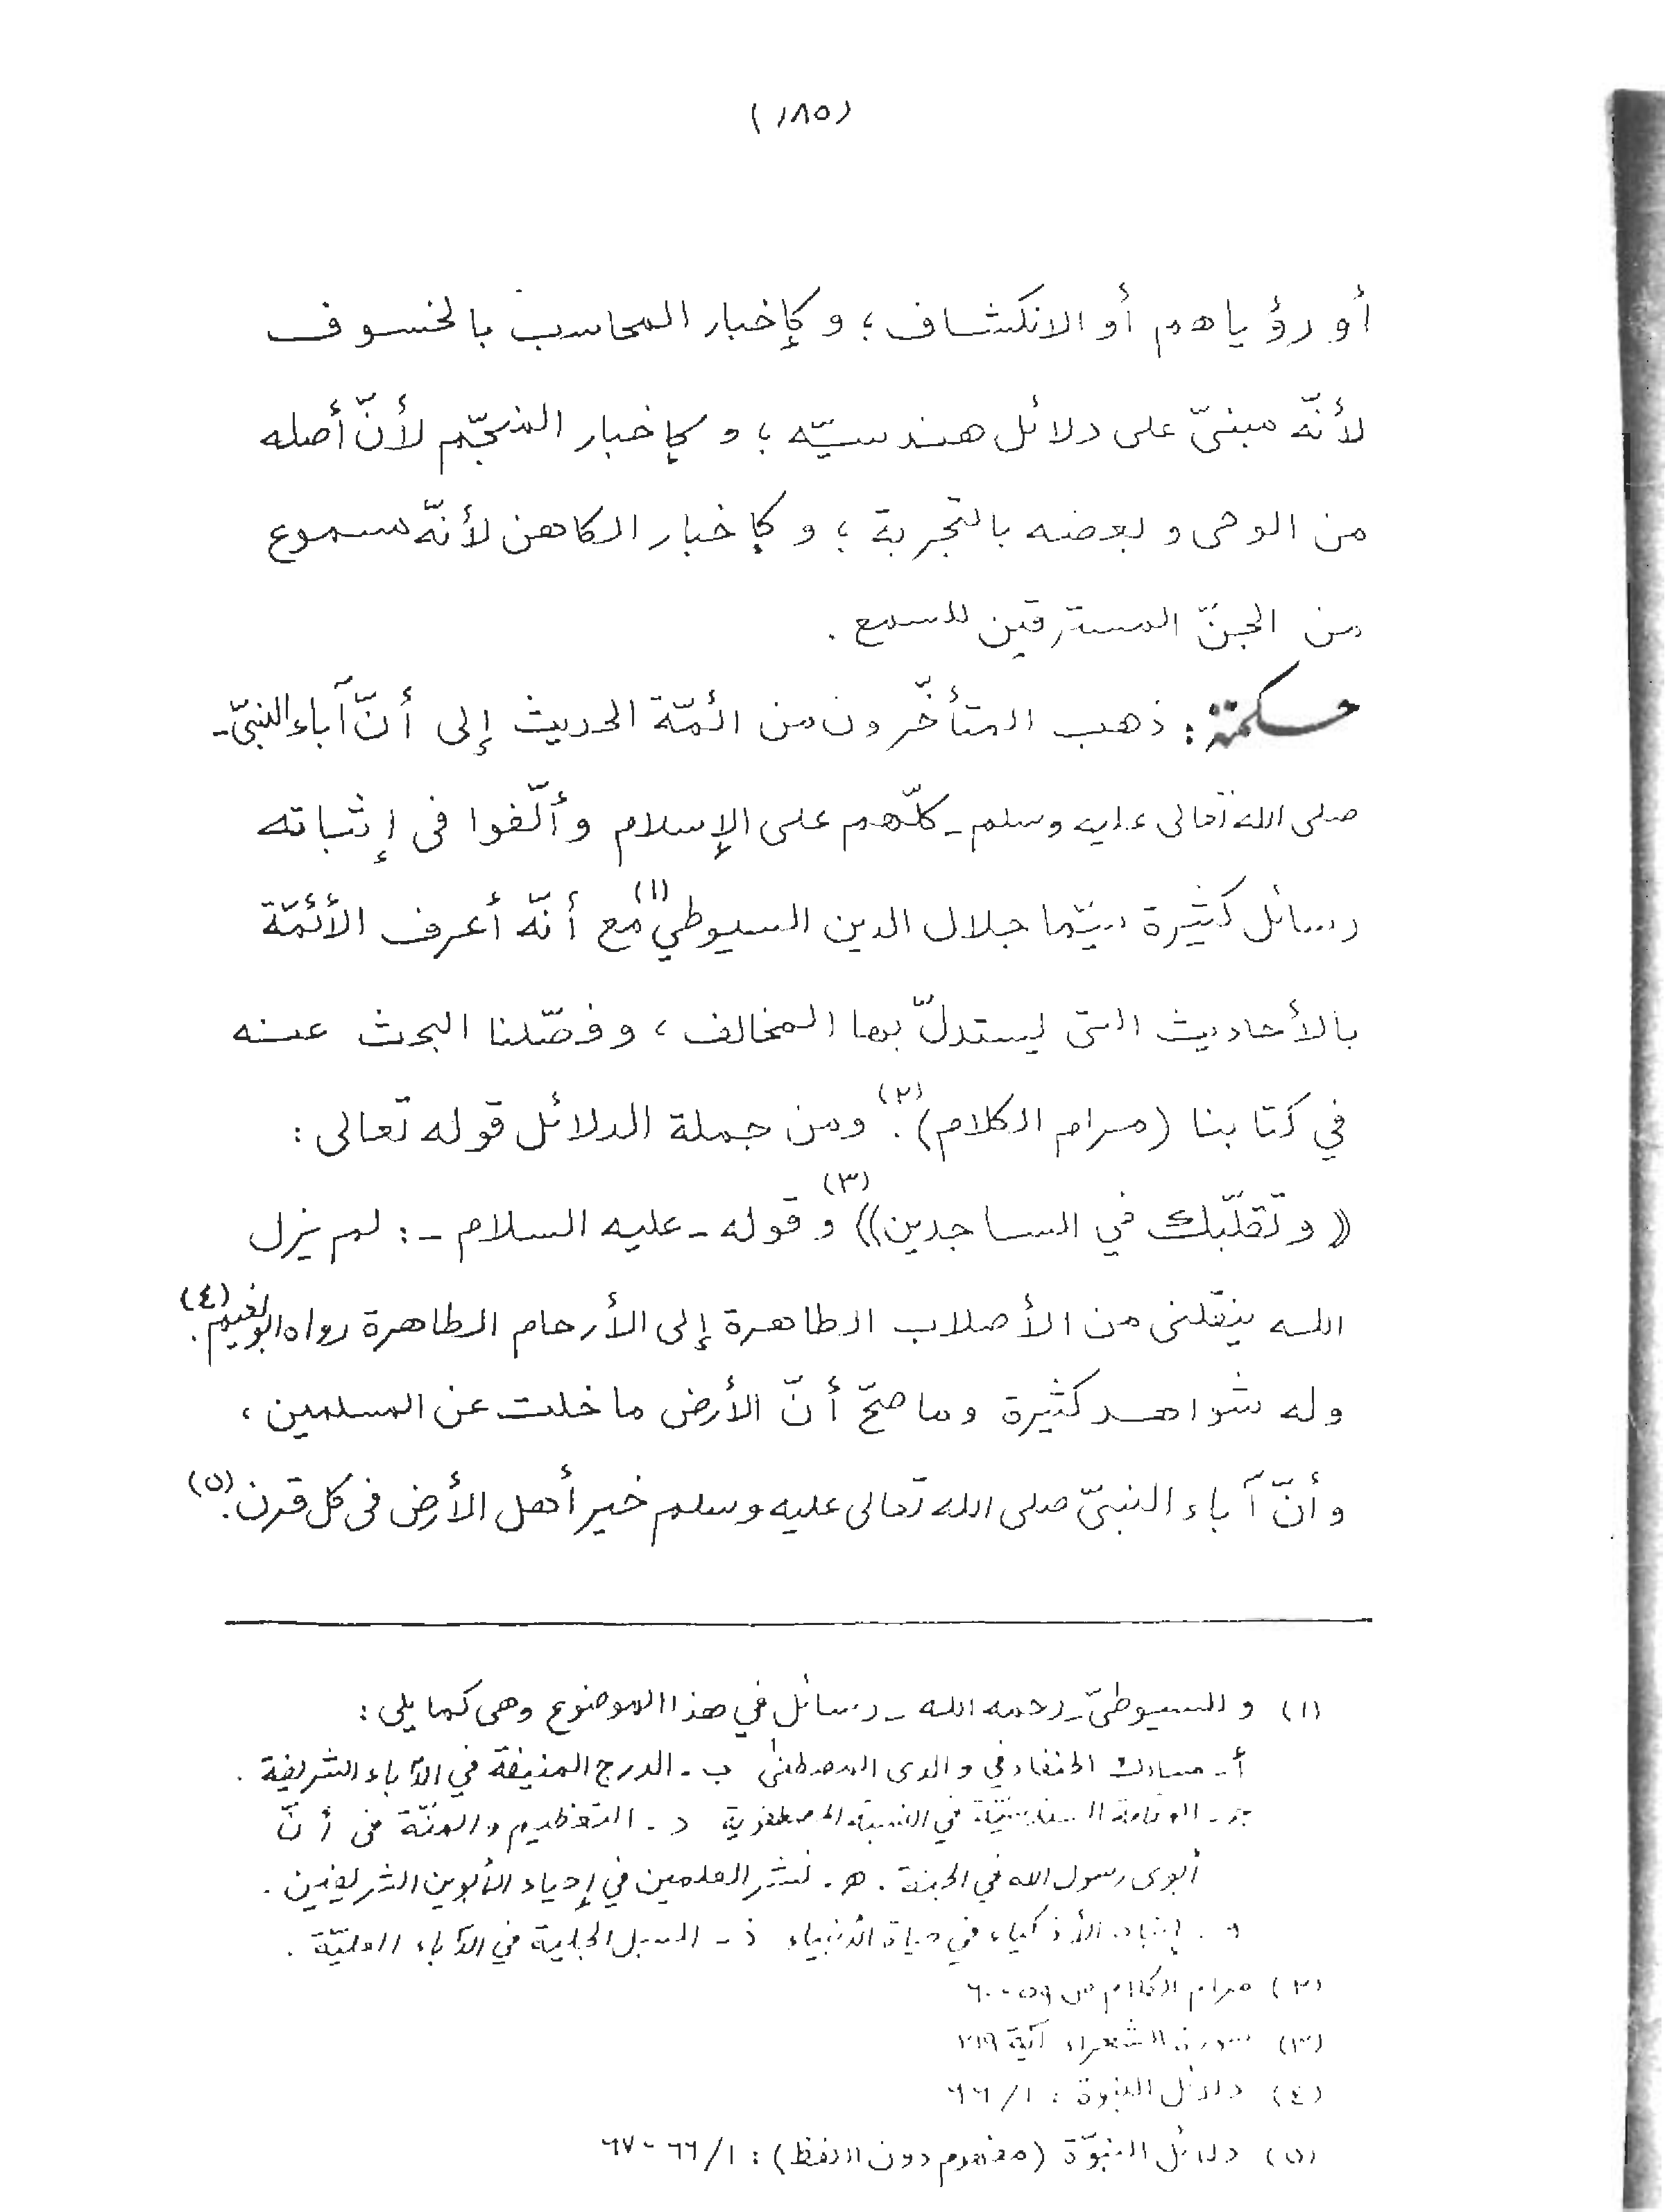 (١٨٥)
أو رؤياهم أو الانكشاف ؛ وكإخبار المحاسب بالخسوف
لأنّه مبنىّ على دلائل هندسيّه ؛ و كإخبار المنجّم لأنّ أصله
من الوحى و بعضه بالتجربة ؛ و كإخبار الكاهن لأنّه مسموع
من الجنّ المسترقين للسمع .
حكمة : ذهب المتأخّرون من ائمّة الحديث إلى أنّ آباء النبىّ -
صلى الله تعالى عليه وسلم - كلّهم على الإسلام وألّفوا فى إثباته
رسائل كثيرة سيّما جلال الدين السيوطي (١) مع أنّه أعرف الأئمّة
بالأحاديث التى يستدلّ بها المخالف ، وفصّلنا البحث عنه
في كتابنا (مرام الكلام) (٢) . ومن جملة الدلائل قوله تعالى :
(( وتقلّبك في الساجدين )) (٣) و قوله - عليه السلام - : لم يزل
الله ينقلنى من الأصلاب الطاهرة إلى الأرحام الطاهرة رواه ابو نعيم (٤) .
وله شواهد كثيرة وما صحّ أنّ الأرض ما خلت عن المسلمين ،
وأنّ آباء النبىّ صلى الله تعالى عليه وسلم خير أهل الأرض فى كل قرن (٥) .
(١) و للسيوطىّ - رحمه الله - رسائل في هذا الموضوع وهى كما يلى :
أ - مسالك الحنفا في والدى المصطفى ب - الدرج المنيفة في الآباء الشريفة .
ج - المقامة السندسيّة في النسبة المصطفوية د - التعظيم والمنّة فى أنّ
أبوى رسول الله في الجنة . ه - نشر العلمين في إحياء الأبوين الشريفين .
و - إنباء الأذكياء في حياة الأنبياء ذ - السبل الجلية في الآباء العليّة .
(٢) مرام الكلام ص ٥٩ - ٦٠
(٣) سورة الشعراء آية ٢١٩
(٤) دلائل النبوة : ١/٦٦
(٥) دلائل النبوّة (مفهوم دون اللفظ) : ١/٦٦ - ٦٧